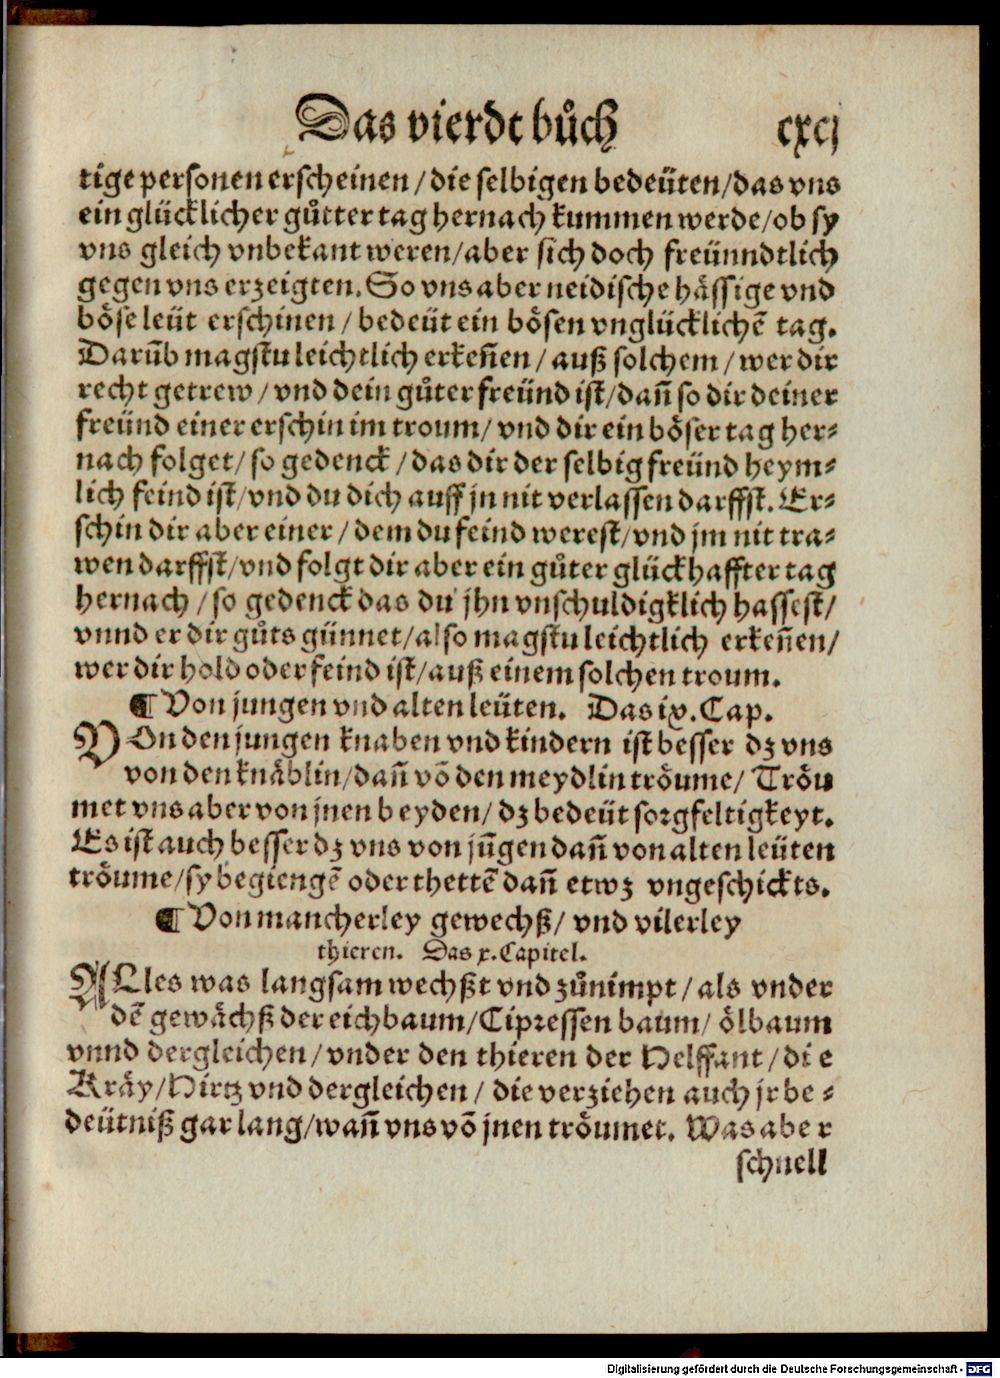 Das vierdt bůch cxcj
tige personen erscheinen / die selbigen bedeüten / das vns
ein glücklicher gůtter tag hernach kummen werde / ob sy
vns gleich vnbekant weren / aber sich doch freünndtlich
gegen vns erzeigten. So vns aber neidische hässige vnd
böse leüt erschinen / bedeüt ein bösen vnglücklichē tag.
Darūb magstu leichtlich erkeñen / auß solchem / wer dir
recht getrew / vnd dein gůter freünd ist / dañ so dir deiner
freünd einer erschin im troum / vnd dir ein böser tag her⸗
nach folget / so gedenck / das dir der selbig freünd heym⸗
lich feind ist / vnd du dich auff jn nit verlassen darffst. Er⸗
schin dir aber einer / dem du feind werest / vnd jm nit tra⸗
wen darffst / vnd folgt dir aber ein gůter glückhaffter tag
hernach / so gedenck das du jhn vnschuldigklich hassest /
vnnd er dir gůts günnet / also magstu leichtlich erkeñen /
wer dir hold oder feind ist / auß einem solchen troum.
¶ Von jungen vnd alten leüten. Das ix. Cap.
VOn den jungen knaben vnd kindern ist besser dz vns
von den knäblin / dañ vō den meydlin tröume / Tröu
met vns aber von jnen beyden / dz bedeüt sorgfeltigkeyt.
Es ist auch besser dz vns von jūgen dañ von alten leüten
tröume / sy begiengē oder thettē dañ etwz vngeschickts.
¶ Von mancherley gewechß / vnd vilerley
thieren. Das x. Capitel.
ALles was langsam wechßt vnd zůnimpt / als vnder
dē gewächß der eichbaum / Cipressen baum / ölbaum
vnnd dergleichen / vnder den thieren der Helffant / die
Kräy / Hirtz vnd dergleichen / die verziehen auch jr be⸗
deütniß gar lang / wañ vns vō jnen tröumet. Was aber
schnell
Digitalisierung gefördert durch die Deutsche Forschungsgemeinschaft - DFG